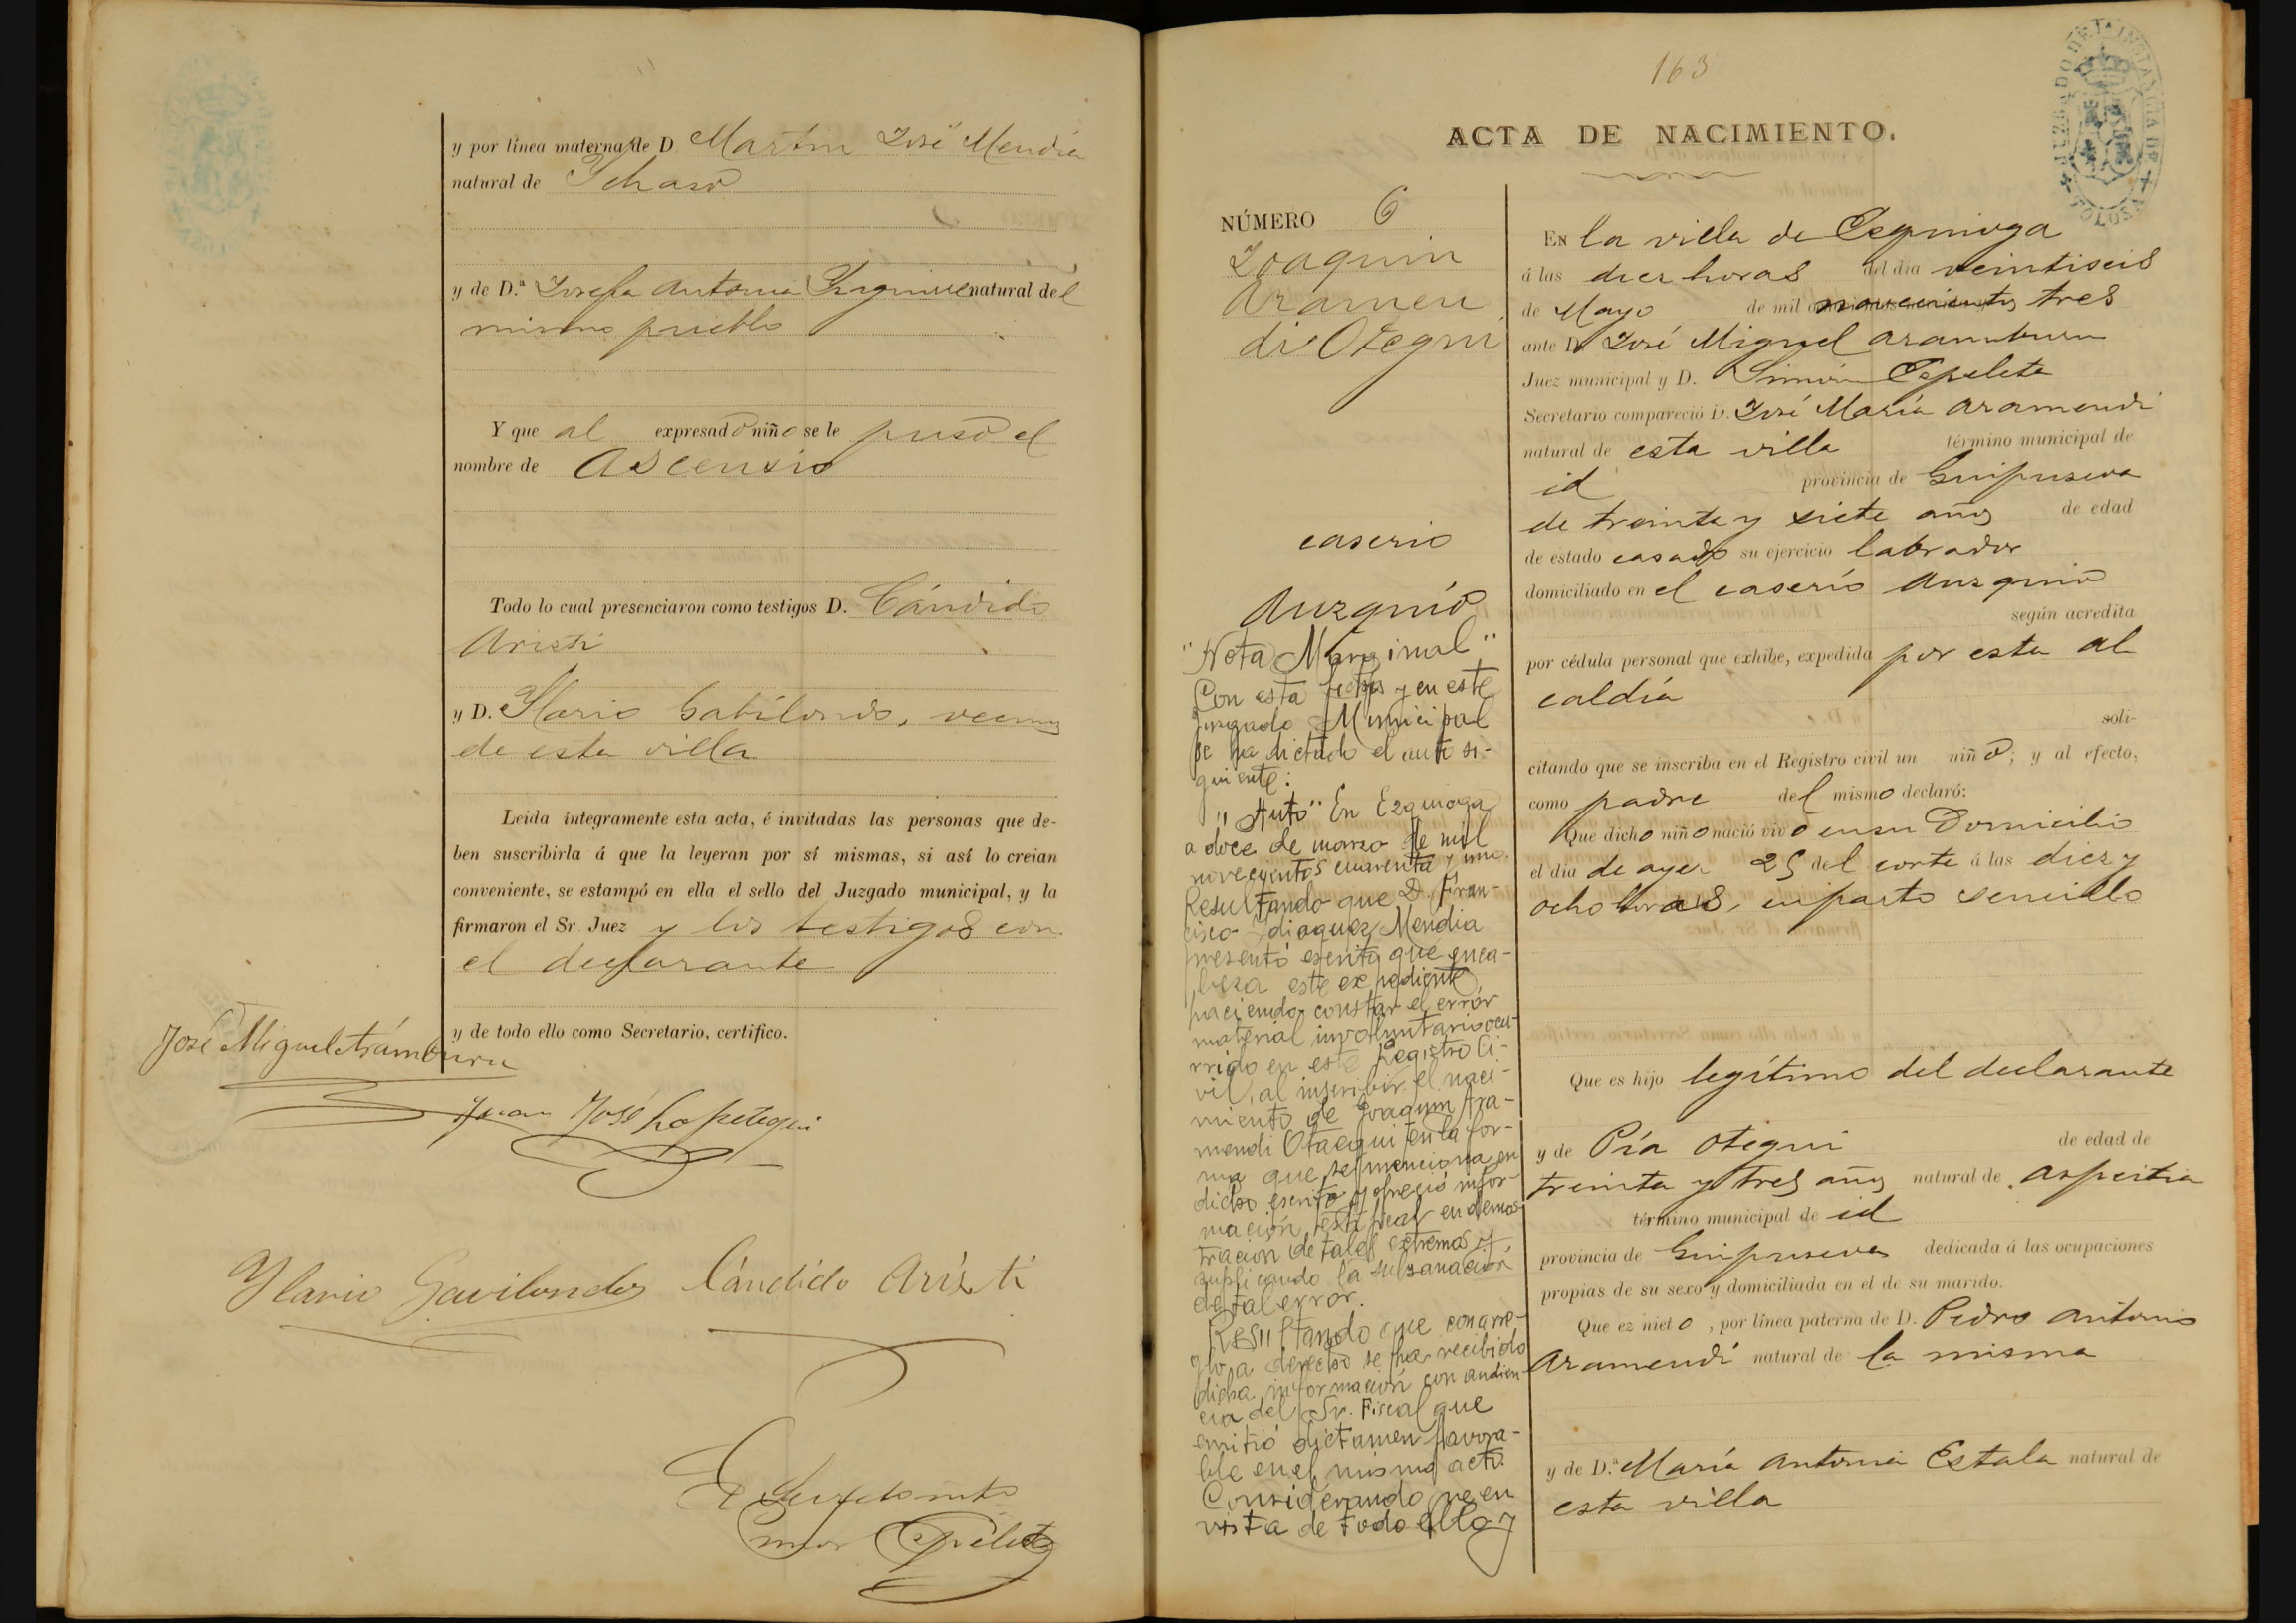 y por línea materna de D. Martin José Mendia
natural de Ichaso
y de D.ª Josefa Antonia natural del
mismo pueblo
Y que al expresado niño se le puso el
nombre de Ascensio
Todo lo cual presenciaron como testigos D. Cándido
Aristi
y D. Ylario Gabilondo, vecinos
de esta villa
Leida íntegramente esta acta, é invitadas las personas que de-
ben suscribirla á que la leyeran por sí mismas, si así lo creian
conveniente, se estampó en ella el sello del Juzgado municipal, y la
firmaron el Sr. Juez y los testigos con
el declarante
y de todo ello como Secretario, certifico.
José Miguel Arámburu
Juan José Lopetegui
Ylario Gavilondo Cándido Aristi
163
JUZGADO DE 1ª INSTANCIA DE TOLOSA
ACTA DE NACIMIENTO.
NÚMERO 6
Joaquin
Aramen
di Otegui
caserio
Auzquió
"Nota Marginal"
Con esta fecha y en este
Juzgado Municipal
se ha dictado el auto si-
guiente:
"Auto" En Ezquioga
a doce de marzo de mil
novecientos cuarenta y uno.
Resultando que D. Fran-
cisco Idiaquez Mendia
presentó escrito que enca-
beza este expediente,
haciendo constar el error
material involuntario ocu-
rrido en este Registro Ci-
vil, al inscribir el naci-
miento de Joaquin Ara-
mendi Otaegui en la for-
ma que se menciona en
dicho escrito y ofreció infor-
mación testifical en demos-
tracion de tales extremos y
suplicando la subsanación
de tal error.
Resultando que con arre-
glo a derecho se ha recibido
dicha información con audien-
cia del Sr. Fiscal que
emitió dictamen favora-
ble en el mismo acto.
Considerando que en
vista de todo ello y
En la villa de Ezquioga
á las diez horas del dia veintiseis
de Mayo de mil novecientos tres
ante D. José Miguel Aramburu
Juez municipal y D. Simón Espeleta
Secretario compareció D. José María Aramendi
natural de esta villa término municipal de
id provincia de Guipuzcoa
de treinta y siete años de edad
de estado casado su ejercicio labrador
domiciliado en el caserío Auzquió
según acredita
por cédula personal que exhibe, expedida por esta al
caldía
soli-
citando que se inscriba en el Registro civil un niño; y al efecto,
como padre del mismo declaró:
Que dicho niño nació vivo en su Domicilio
el dia de ayer 25 del corte á las diez y
ocho horas, en parto sencillo
Que es hijo legítimo del declarante
y de Pía Otegui de edad de
treinta y tres años natural de Azpeitia
término municipal de id
provincia de Guipuzcoa dedicada á las ocupaciones
propias de su sexo y domiciliada en el de su marido.
Que es nieto, por línea paterna de D. Pedro Antonio
Aramendi natural de la misma
y de D.ª María Antonia Estala natural de
esta villa